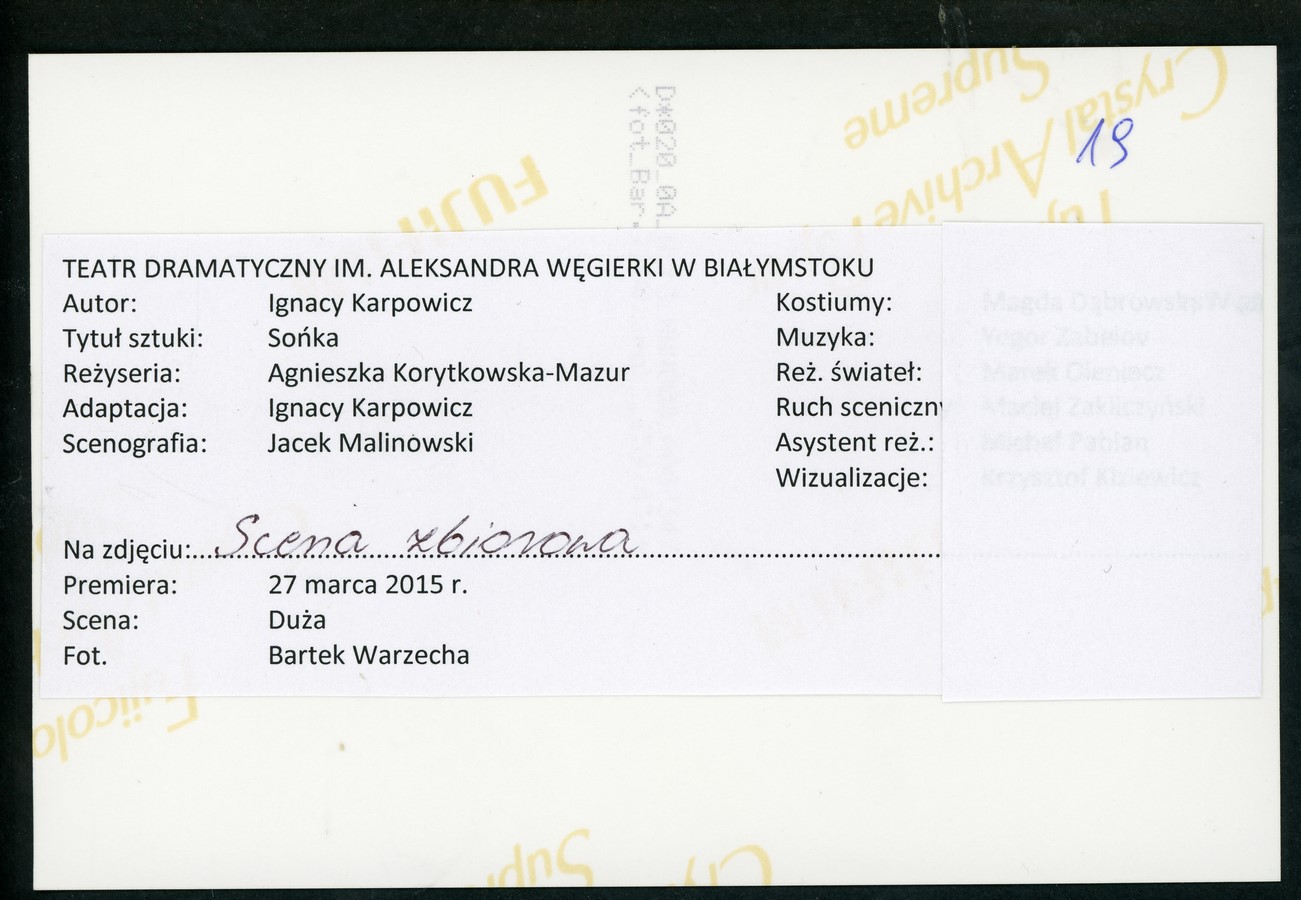 Crystal Archive
Supreme
19
D*020_0A_
<fot_Bar
FUJI
TEATR DRAMATYCZNY IM. ALEKSANDRA WĘGIERKI W BIAŁYMSTOKU
Autor: Ignacy Karpowicz Kostiumy: Magda Dąbrowska
Tytuł sztuki: Sońka Muzyka: Yegor Zabelov
Reżyseria: Agnieszka Korytkowska-Mazur Reż. świateł: Marek Oleniacz
Adaptacja: Ignacy Karpowicz Ruch sceniczny: Maciej Zakliczyński
Scenografia: Jacek Malinowski Asystent reż.: Michał Pabian
Wizualizacje: Krzysztof Kiziewicz
Na zdjęciu: Scena zbiorowa
Premiera: 27 marca 2015 r.
Scena: Duża
Fot. Bartek Warzecha
Fujicolo
Sup
Cry